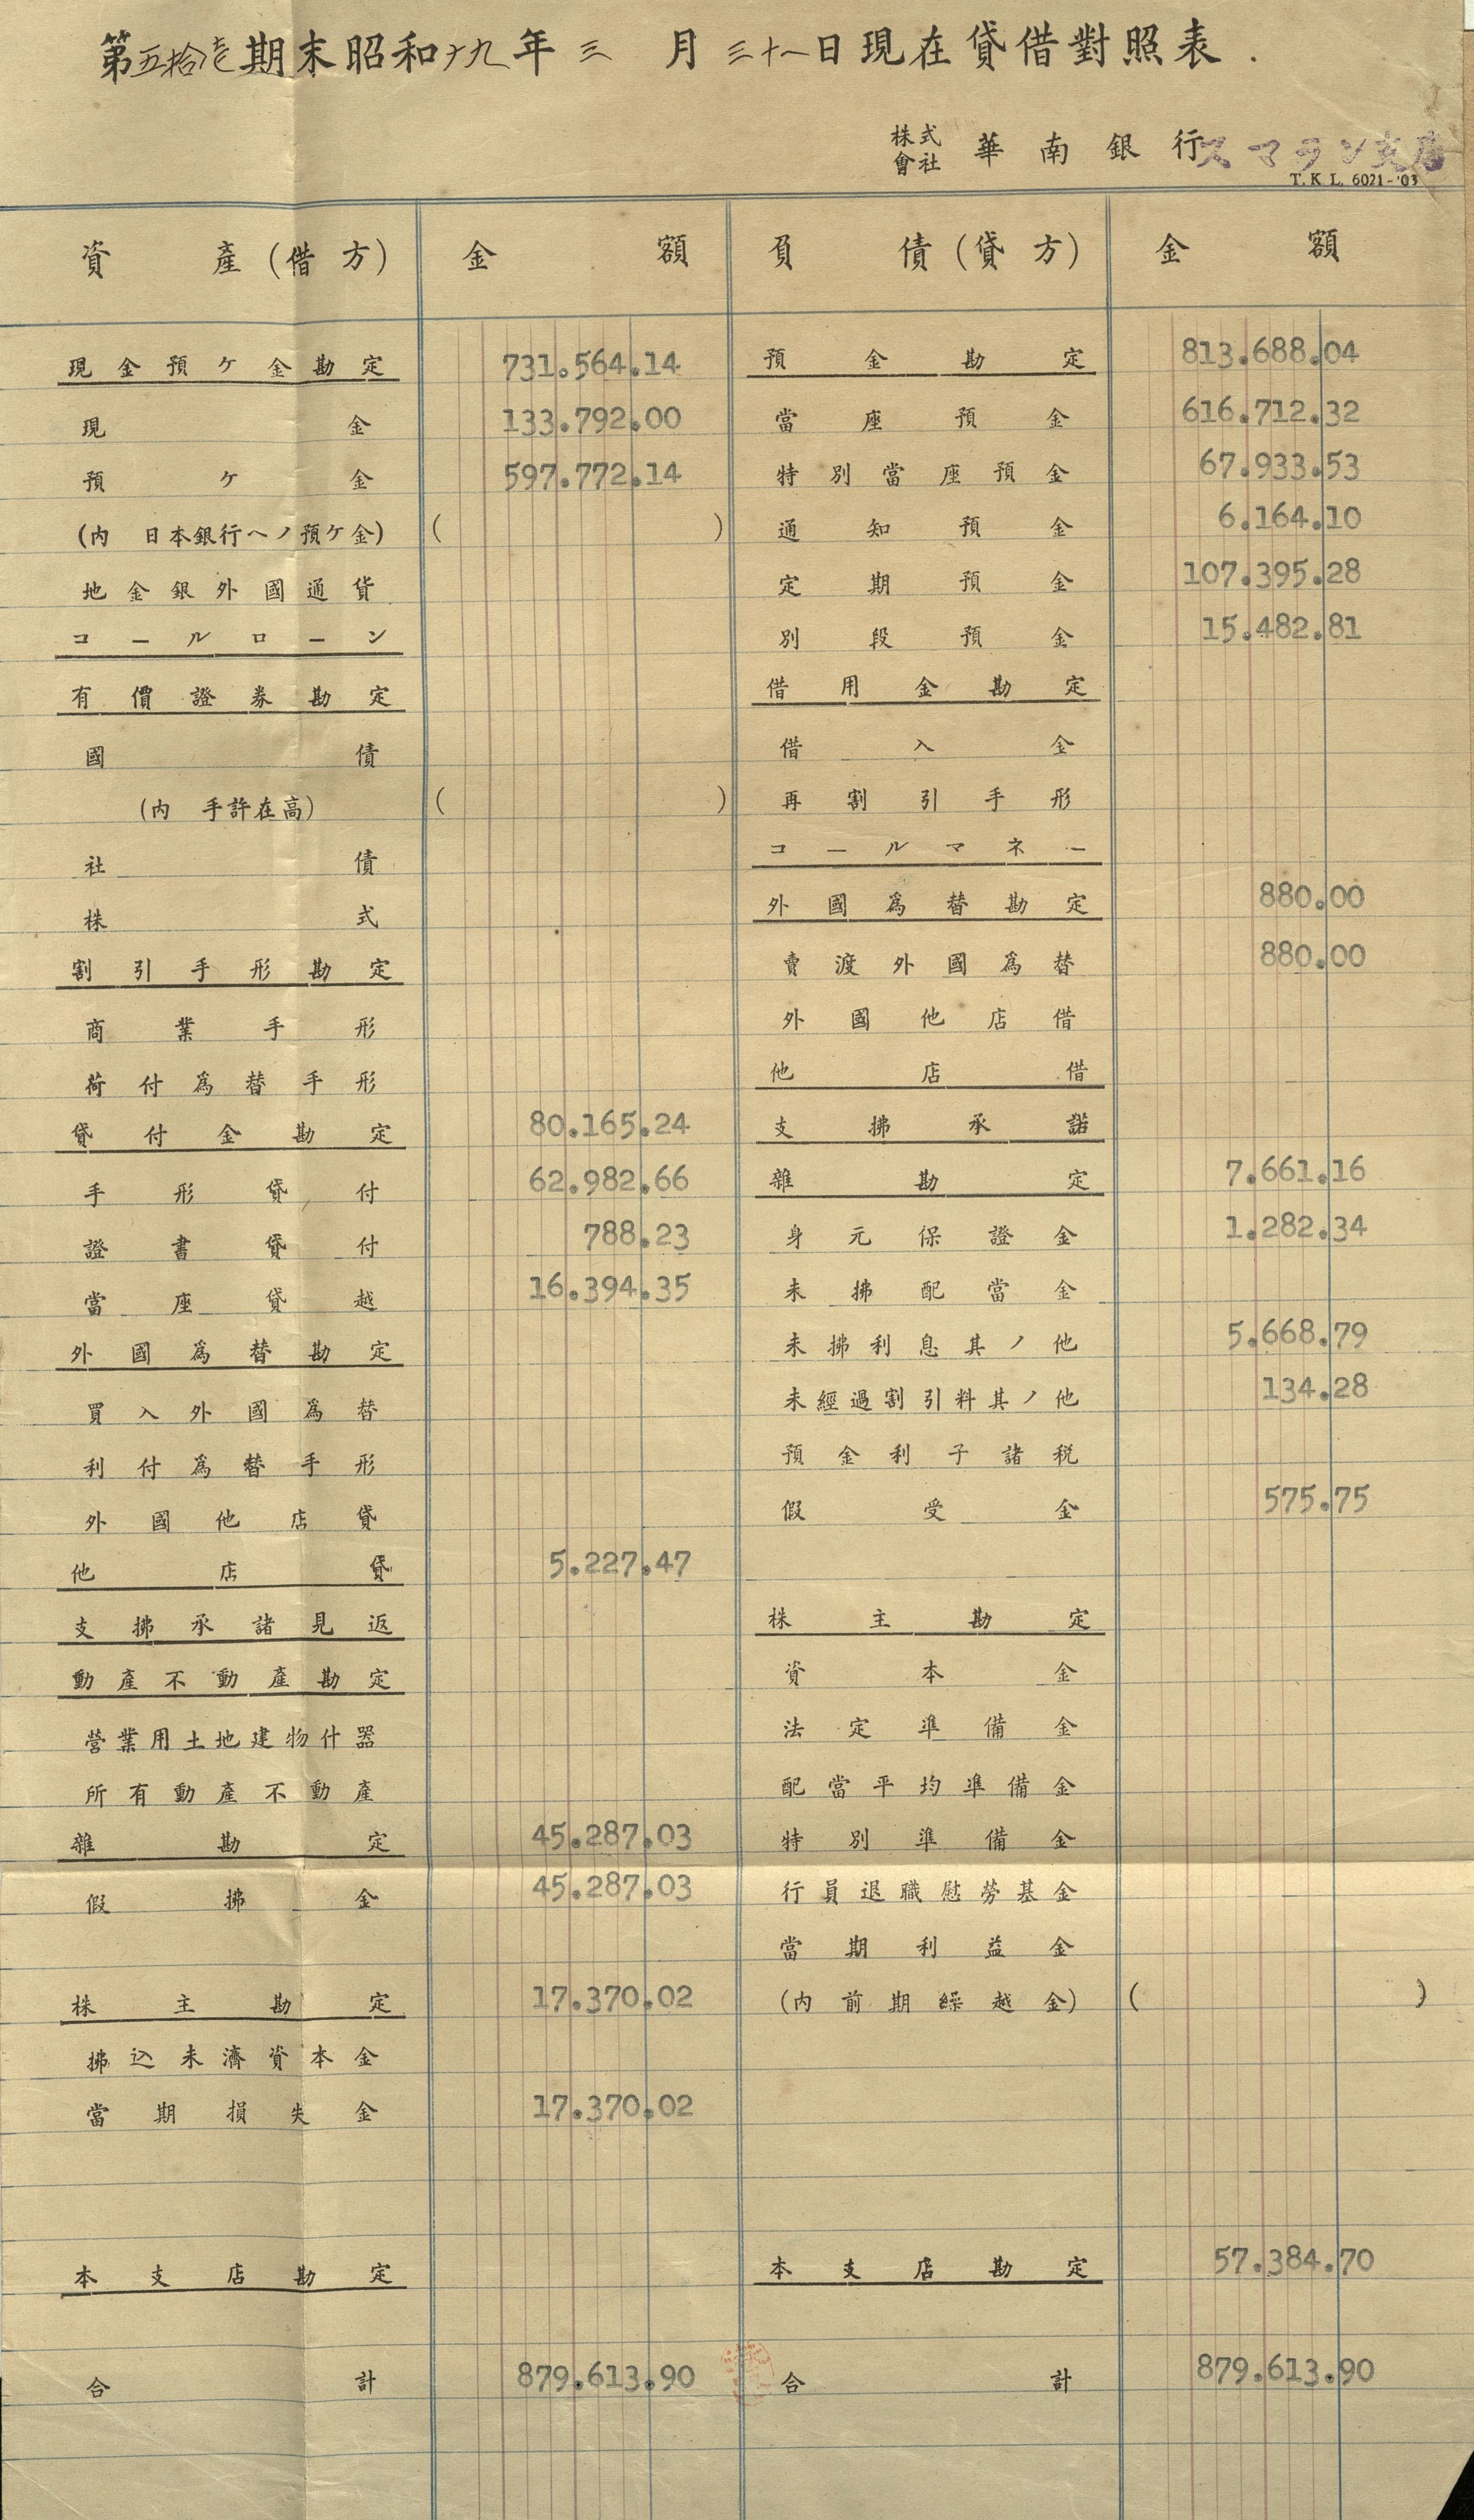 第五拾壱期末昭和十九年三月三十一日現在貸借對照表.
株式會社 華南銀行スマラン支店
T. K. L. 6021-'03
資產(借方) 金額 負債(貸方) 金額
現金預ケ金勘定 731.564.14 預金勘定 813.688.04
現金 133.792.00 當座預金 616.712.32
預ケ金 597.772.14 特別當座預金 67.933.53
(内 日本銀行ヘノ預ケ金) ( ) 通知預金 6.164.10
地金銀外國通貨 定期預金 107.395.28
コールローン 別段預金 15.482.81
有價證券勘定 借用金勘定
國債 借入金
(内 手許在高) ( ) 再割引手形
社債 コールマネー
株式 外國爲替勘定 880.00
割引手形勘定 賣渡外國爲替 880.00
商業手形 外國他店借
荷付爲替手形 他店借
貸付金勘定 80.165.24 支拂承諾
手形貸付 62.982.66 雜勘定 7.661.16
證書貸付 788.23 身元保證金 1.282.34
當座貸越 16.394.35 未拂配當金
外國爲替勘定 未拂利息其ノ他 5.668.79
買入外國爲替 未經過割引料其ノ他 134.28
利付爲替手形 預金利子諸税
外國他店貸 假受金 575.75
他店貸 5.227.47
支拂承諸見返 株主勘定
動產不動產勘定 資本金
營業用土地建物什器 法定準備金
所有動產不動產 配當平均準備金
雜勘定 45.287.03 特別準備金
假拂金 45.287.03 行員退職慰勞基金
當期利益金
株主勘定 17.370.02 (内前期繰越金) ( )
拂込未濟資本金
當期損失金 17.370.02
本支店勘定 本支店勘定 57.384.70
合計 879.613.90 合計 879.613.90